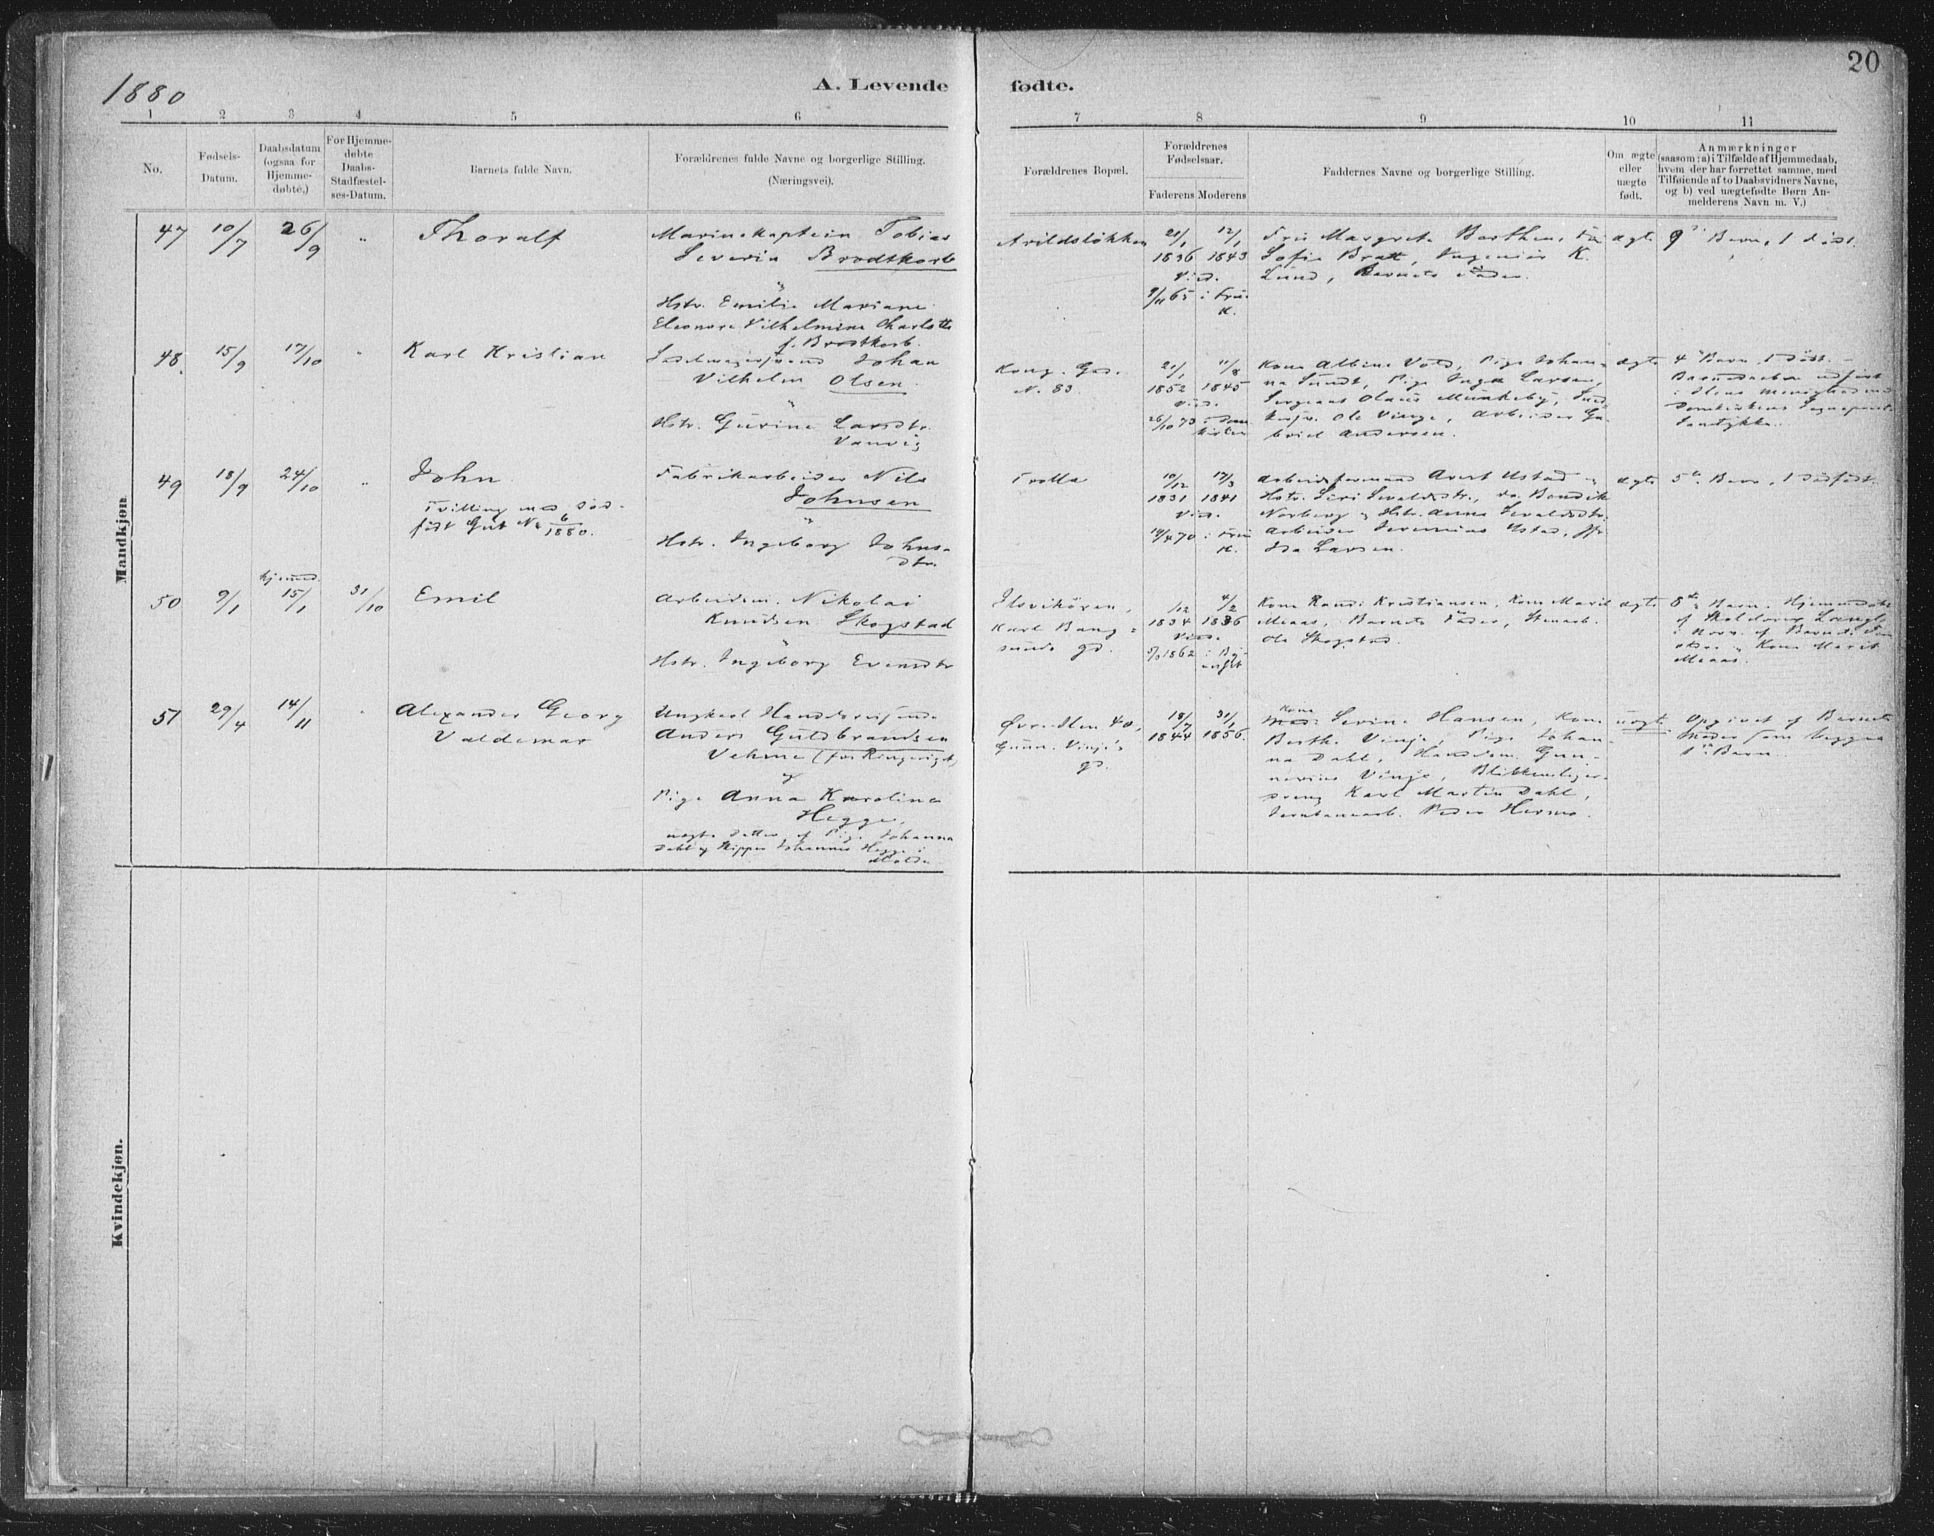 1880
A. Levende fødte.
20
1 2 3 4 5 6 7 8 9 10 11
No.
Fødsels-
Datum.
Daabsdatum
(ogsaa for
Hjemme-
døbte.)
For Hjemme-
døbte
Daabs-
Stadfæstel-
ses-Datum.
Barnets fulde Navn.
Forældrenes fulde Navne og borgerlige Stilling.
(Næringsvei).
Forældrenes Bopæl.
Forældrenes
Fødselsaar.
Faderens Moderens
Faddernes Navne og borgerlige Stilling.
Om ægte
eller
uægte
født.
Anmærkninger
(saasom: a) i Tilfælde af Hjemmedaab,
hvem der har forrettet samme, med
Tilføiende af to Daabsvidners Navne,
og b) ved uægtefødte Børn An-
melderens Navn m. V.)
Mandkjøn
47 10/7 26/9 " Thoralf
Marinekaptein Tobias
Severin Brodtkorb
Hstr. Emilie Mariane
Eleonore Vilhelmine Charlotte
f. Brodtkorb.
Arildsløkken
21/1 12/1
1836 1843
Vied.
9/11 65 i Frue
K.
Fru Margrete Barthen,
Sofie Bratt, Ingeniør K.
Lund, Barnets Fader.
ægte
9 Barn, 1 død.
48. 15/9 17/10 " Karl Kristian
Johan
Vilhelm Olsen.
Hstr. Gurine Larsdtr.
Vanvig
Kong. Gd.
N. 83.
21/1 11/8
1852 1845
Vied.
26/10 73 i Dom
kirken
Kone Albine Vold, Pige Johan-
na Sundt, Pige Inga Larsen,
Sergeant Olaus Munkeby,
Ole Vinge, Arbeider Ga-
briel Andersen.
ægte
4 Barn, 1 død. -
Barnedaaben udført
i Ilens Menighed med
Domkirkens Sognepræsts
Samtykke.
49 18/9 24/10 " John
Tvilling med død-
født Gut No 6/1880.
Fabrikarbeider Nils
Johnsen
Hstr. Ingeborg Johns-
dtr.
Trolla
10/12 17/3
1831 1841
Vied.
70 i Frue
K.
Arbeidsformand Avert Ustad
Hstr. Siri Sevaldsdtr., do. Bendik
Norberg og Hstr. Anna Sevaldsdtr.
Arbeider Jeremias Ustad,
Ida Larsen.
ægte
5te Barn, 1 dødfødt.
hjemmed.
50 9/1 15/1 31/10 Emil
Arbeidsm. Nikolai
Knudsen Skogstad
Hstr. Ingeborg Evensdtr
Ilsvikøren,
Karl Bang-
sunds gd.
/12 4/2
1834 1836
Vied.
1862 i By-
Kone Randi Kristiansen, Kone Marit
Meaas, Barnets Fader, Stenarb.
Ole Skogstad.
ægte
8de Barn. Hjemmedøbt
af Langli
i Nærv. af Barnets
og Kone Marit
Meaas.
51 29/4 14/11 " Alexander Georg
Valdemar
Ungkarl Handelsreisende
Anders Guldbrandsen
Vehme (fra Ringeriget)
og
Pige Anna Karoline
Hegge,
uægte Datter af Pige Johanna
Dahl og Skipper Johannes Hegge i
Molde
Øvre Ilen 40,
Gunn. Vinje's
gd.
18/7 31/1
1844 1856.
Kone
Serine Hansen, Kone
Berthe Vinje, Pige Johan-
na Dahl, Handelsm. Gun-
nerius Vinje, Blikkenslager-
dreng Karl Martin Dahl,
Jernbanearb. Peder Hermo.
uægte
Opgivet af Barnets
Moder som begges
1ste Barn.
Kvindekjøn.